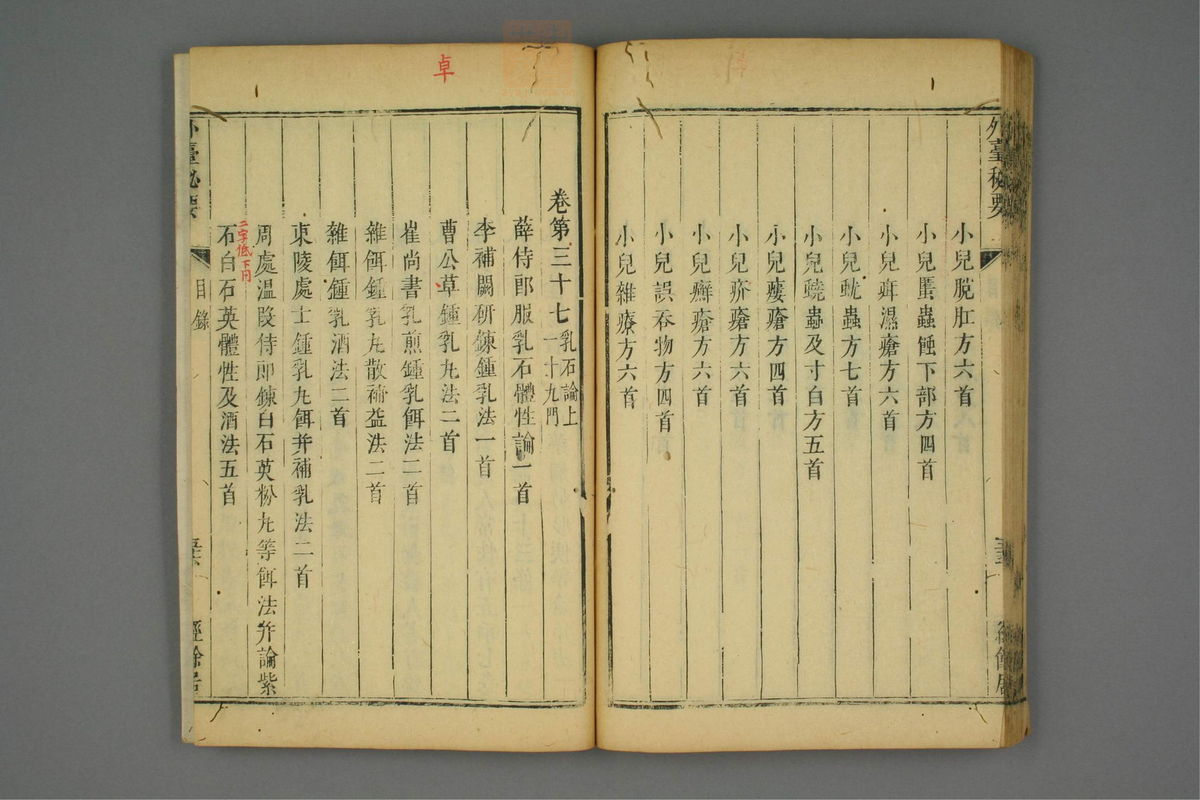 外臺秘要
小兒脫肛方六首
小兒䘌蟲蝕下部方四首
小兒疳濕瘡方六首
小兒蚘蟲方七首
小兒蟯蟲及寸白方五首
小兒瘻瘡方四首
小兒疥瘡方六首
小兒癬瘡方六首
小兒誤吞物方四首
小兒雜療方六首
卓
卷第三十七乳石論上
一十九門
薛侍郎服乳石體性論一首
李補闕研鍊鍾乳法一首
曹公草鍾乳丸法二首
崔尚書乳煎鍾乳餌法二首
雜餌鍾乳丸散補益法二首
雜餌鍾乳酒法二首
東陵處士鍾乳丸餌并補乳法二首
周處溫叚侍郎鍊白石英粉丸等餌法并論紫
二字低下同
石白石英體性及酒法五首
外臺秘要
目錄
經餘居